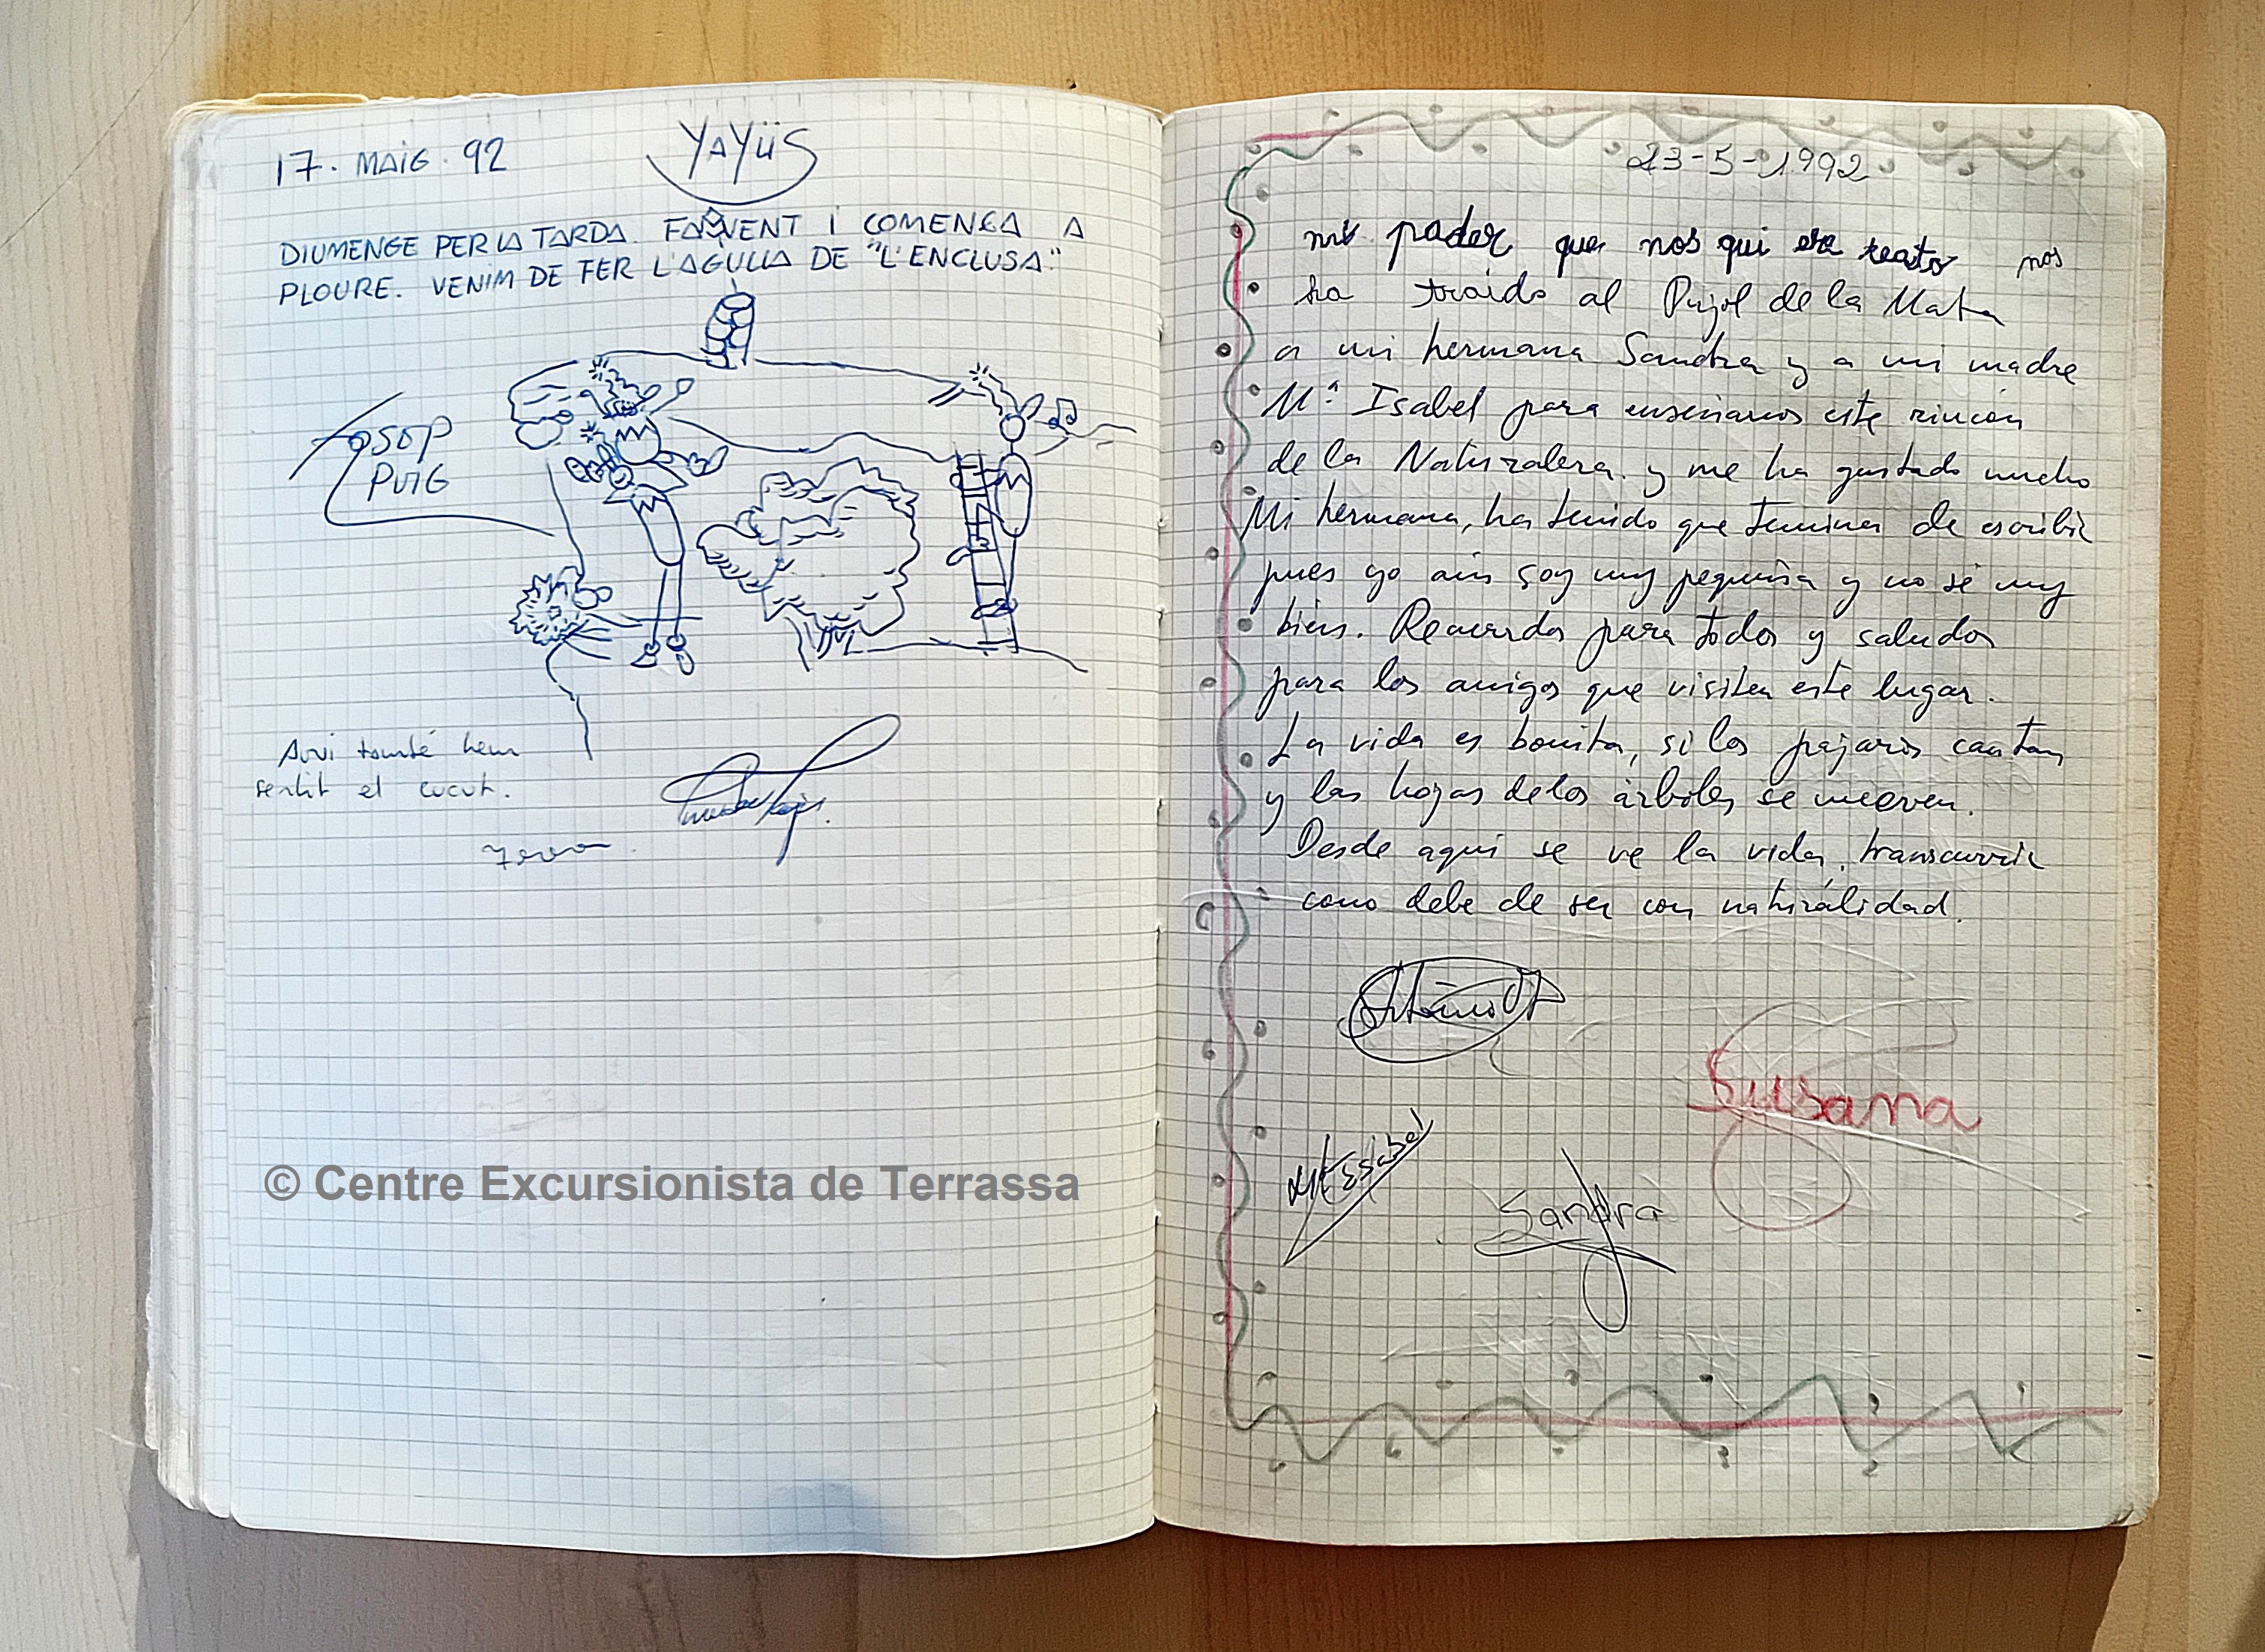 17. MAIG. 92
YAYÜS
DIUMENGE PER LA TARDA. FA VENT I COMENÇA A
PLOURE. VENIM DE FER L'AGULLA DE "L'ENCLUSA."
JOSEP
PUIG
Aquí també hem
sentit el cucut.
© Centre Excursionista de Terrassa
23-5-1992
mi pader que nos qui era nos
ha traido al Pujol de la Mata
a mi hermana Sandra y a mi madre
Mª Isabel para enseñarnos este rincón
de la Naturaleza y me ha gustado mucho
Mi hermana, ha tenido que terminar de escribir
pues yo aún soy muy pequeña y no sé muy
bien. Recuerdos para todos y saludos
para los amigos que visiten este lugar.
La vida es bonita, si los pajaros cantan
y las hojas de los árboles se mueven.
Desde aqui se ve la vida, transcurrir
como debe de ser con naturalidad.
Susana
Mª Isabel
Sandra